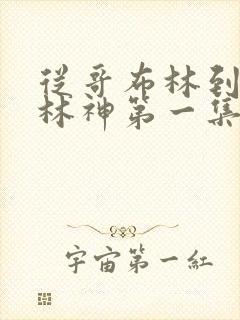 從哥布林到
林神第一集
宇宙第一紅